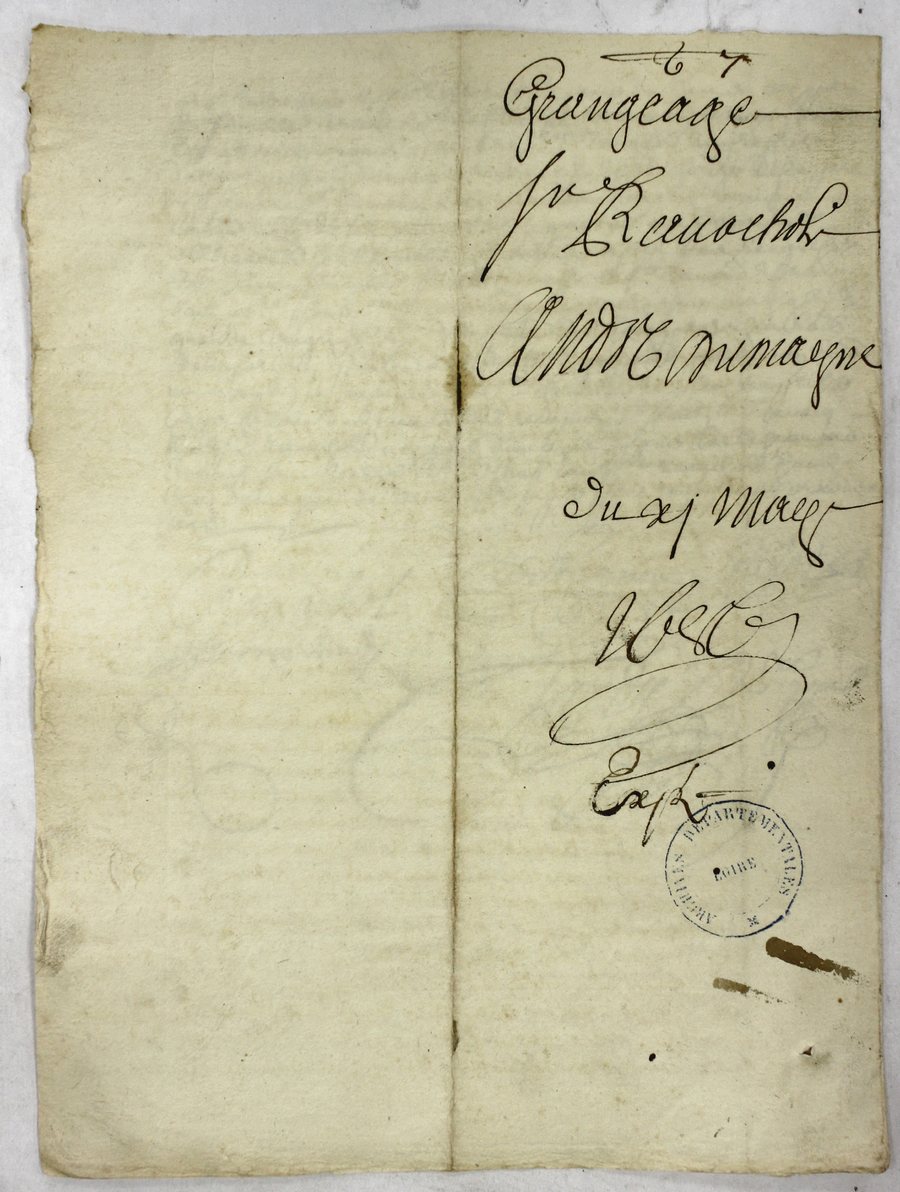 67
Grangeage
sr Ravachol
André Dumaigne
Du xj may
Exp
ARCHIVES DÉPARTEMENTALES
LOIRE